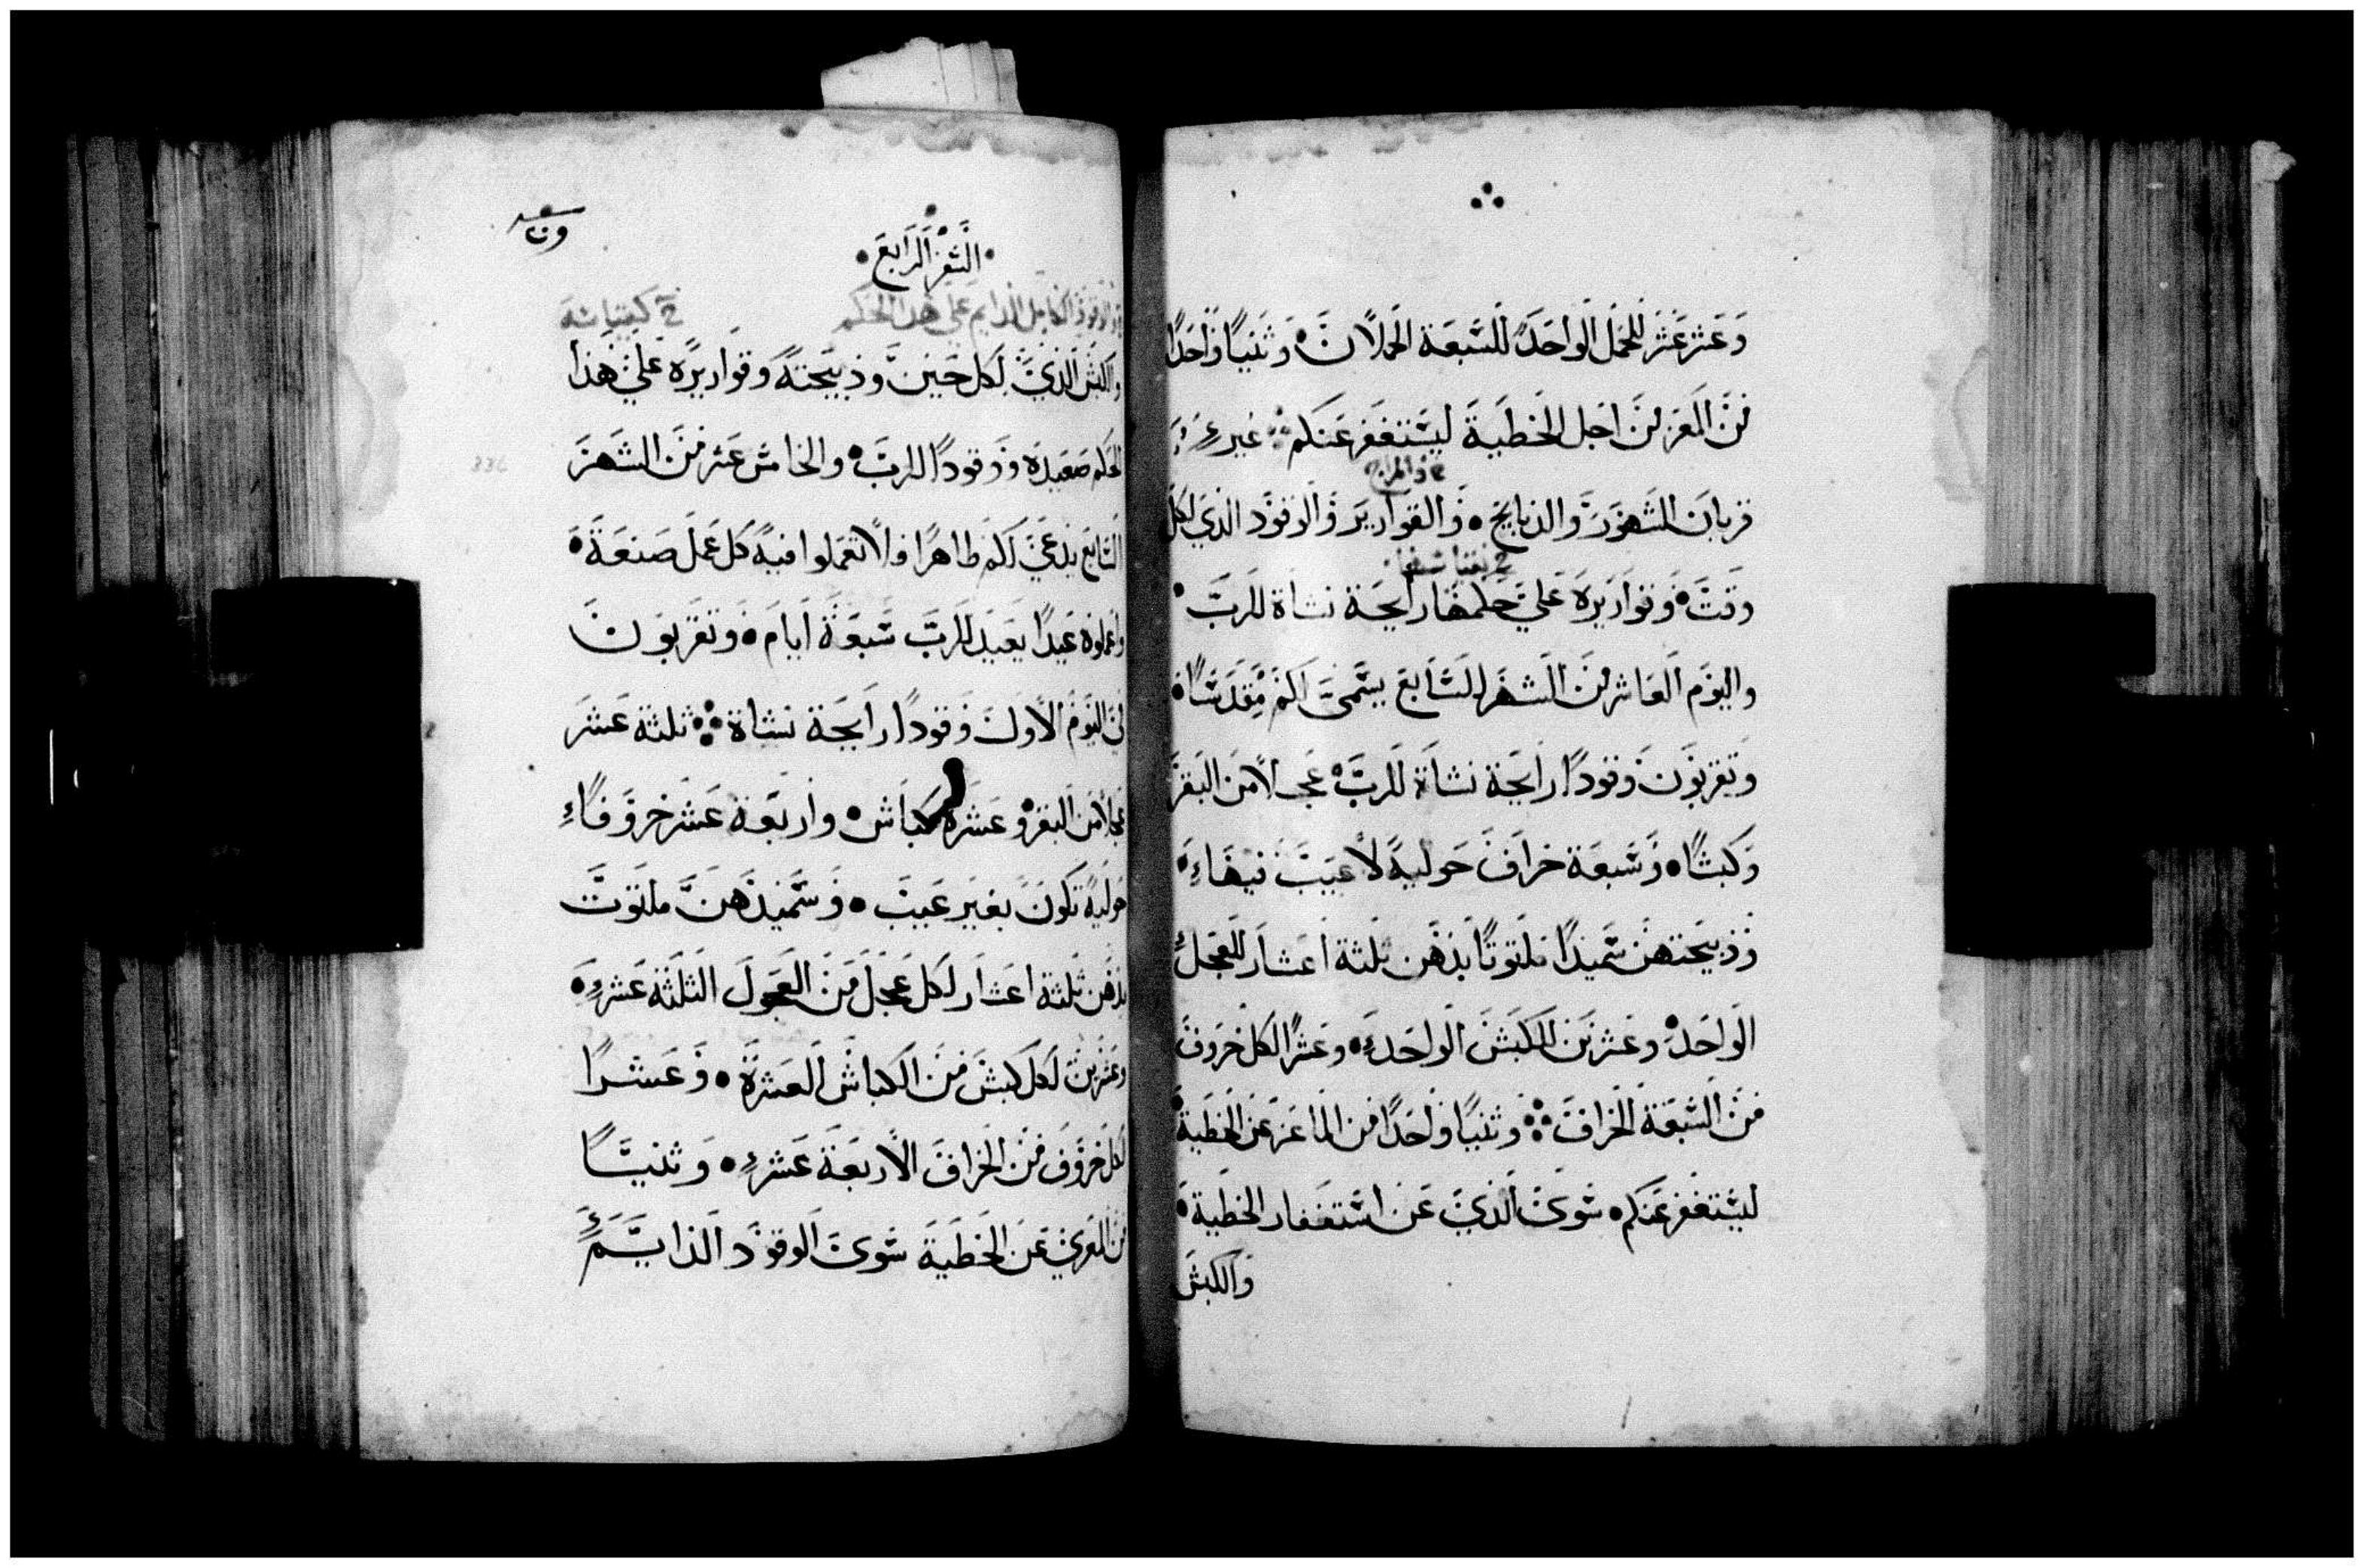 وعشر عشر للحمل الواحد للسبعة الحملان وثنيًا واحدًا
من المعز من اجل الخطية ليستغفر عنكم غير
قربان الشهور والذبايح والقوارير والوقود الذي لكل
وقت وقواريره علي حكمها رايحة نشاة للرب
واليوم العاشر من الشهر السابع يسمى لكم مقدسًا
وتقربون وقودًا رايحة نشاة للرب عجلا من البقر
وكبشًا وسبعة خراف حولية لا عيب فيها
وذبيحتهن سميدًا ملتوتًا بدهن ثلثة اعشار للعجل
الواحد وعشرين للكبش الواحد وعشرًا لكل خروف
من السبعة الخراف وثنيًا واحدًا من الماعز عن الخطية
ليستغفر عنكم سوى الذي عن استغفار الخطية
والكبش
السفر الرابع
والوقود الكامل الدايم على هذا الحكم
والكبش الذي لكل حين وذبيحته وقواريره على هذا
الحكم صعيدة ووقودًا للرب والخامس عشر من الشهر
السابع يدعى لكم طاهرًا ولا تعملوا فيه كل عمل صنعة
واعملوه عيدًا بعيد للرب سبعة ايام وتقربون
في اليوم الاول وقودًا رايحة نشاة ثلثة عشر
عجلا من البقر وعشرة كباش واربعة عشر خروفًا
حولية تكون بغير عيب وسميدهن ملتوت
بدهن ثلثة اعشار لكل عجل من العجول الثلثة عشر
وعشرين لكل كبش من الكباش العشرة وعشرًا
لكل خروف من الخراف الاربعة عشر وثنيًا
من المعزي عن الخطية سوى الوقود الدايم